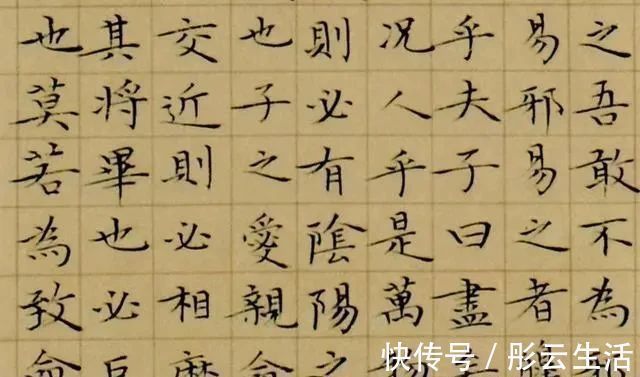 之吾敢不為
易邪易之者
乎夫子曰盡
況人乎是萬
則必有陰陽之
也子之愛親命
交近則必相靡
其將畢也必巨
也莫若為致命
快传号 / 彤云生活